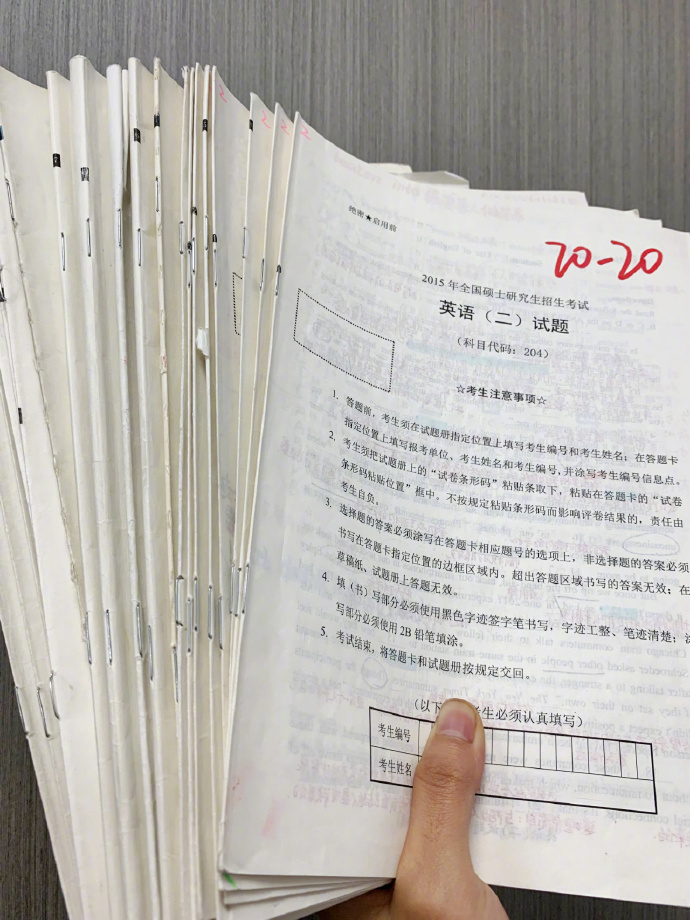 绝密★启用前
20-20
2015 年全国硕士研究生招生考试
英语（二）试题
（科目代码：204）
☆考生注意事项☆
1. 答题前，考生须在试题册指定位置上填写考生编号和考生姓名；在答题卡
指定位置上填写报考单位、考生姓名和考生编号，并涂写考生编号信息点。
2. 考生须把试题册上的“试卷条形码”粘贴条取下，粘贴在答题卡的“试卷
条形码粘贴位置”框中。不按规定粘贴条形码而影响评卷结果的，责任由
考生自负。
3. 选择题的答案必须涂写在答题卡相应题号的选项上，非选择题的答案必须
书写在答题卡指定位置的边框区域内。超出答题区域书写的答案无效；在
草稿纸、试题册上答题无效。
4. 填（书）写部分必须使用黑色字迹签字笔书写，字迹工整、笔迹清楚；
写部分必须使用 2B 铅笔填涂。
5. 考试结束，将答题卡和试题册按规定交回。
（以下 考生必须认真填写）
考生编号
考生姓名